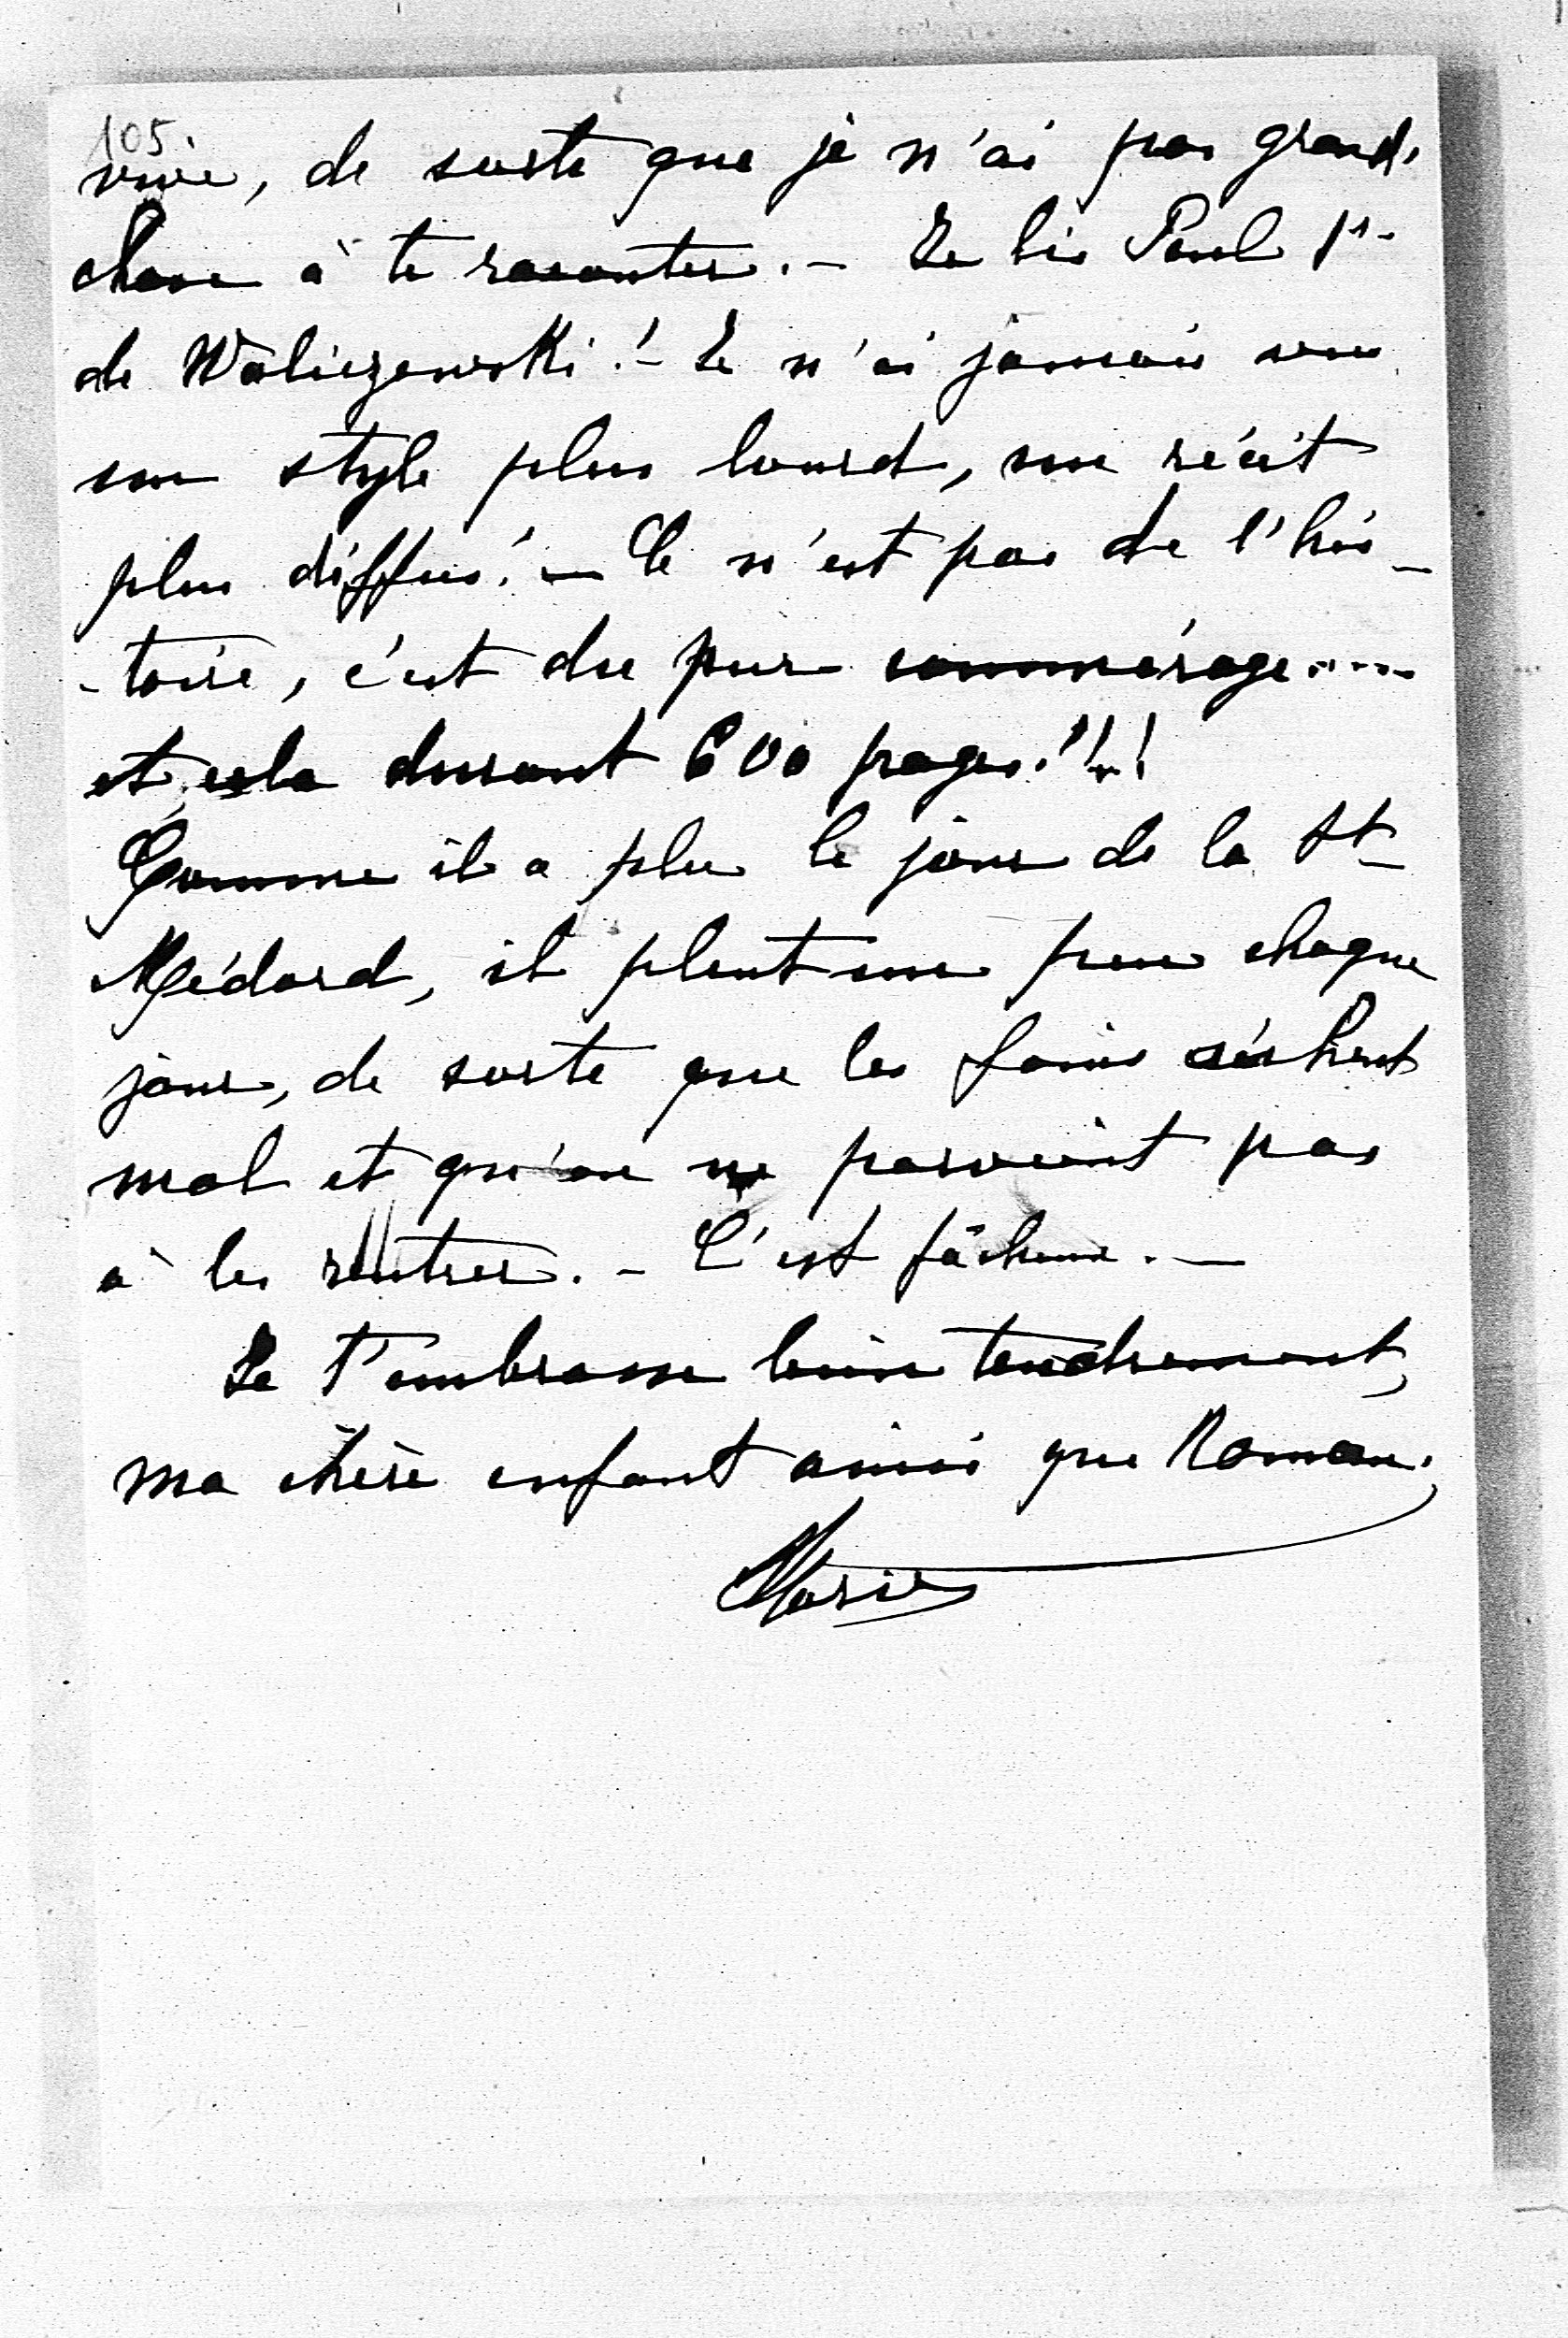 105.
vive, de sorte que je n'ai pas grand'
chose à te raconter. — Je lis Paul 1er
de Waliszewski! — Je n'ai jamais vu
un style plus lourd, un récit
plus diffus! — Ce n'est pas de l'his-
-toire, c'est du pur commérage....
et cela durant 600 pages!!!
Comme il a plu le jour de la St
Médard, il pleut un peu chaque
jour, de sorte que les foins sèchent
mal et qu'on ne parvient pas
à les rentrer. — C'est fâcheux. —
Je t'embrasse bien tendrement,
ma chère enfant ainsi que Roman.
Marie